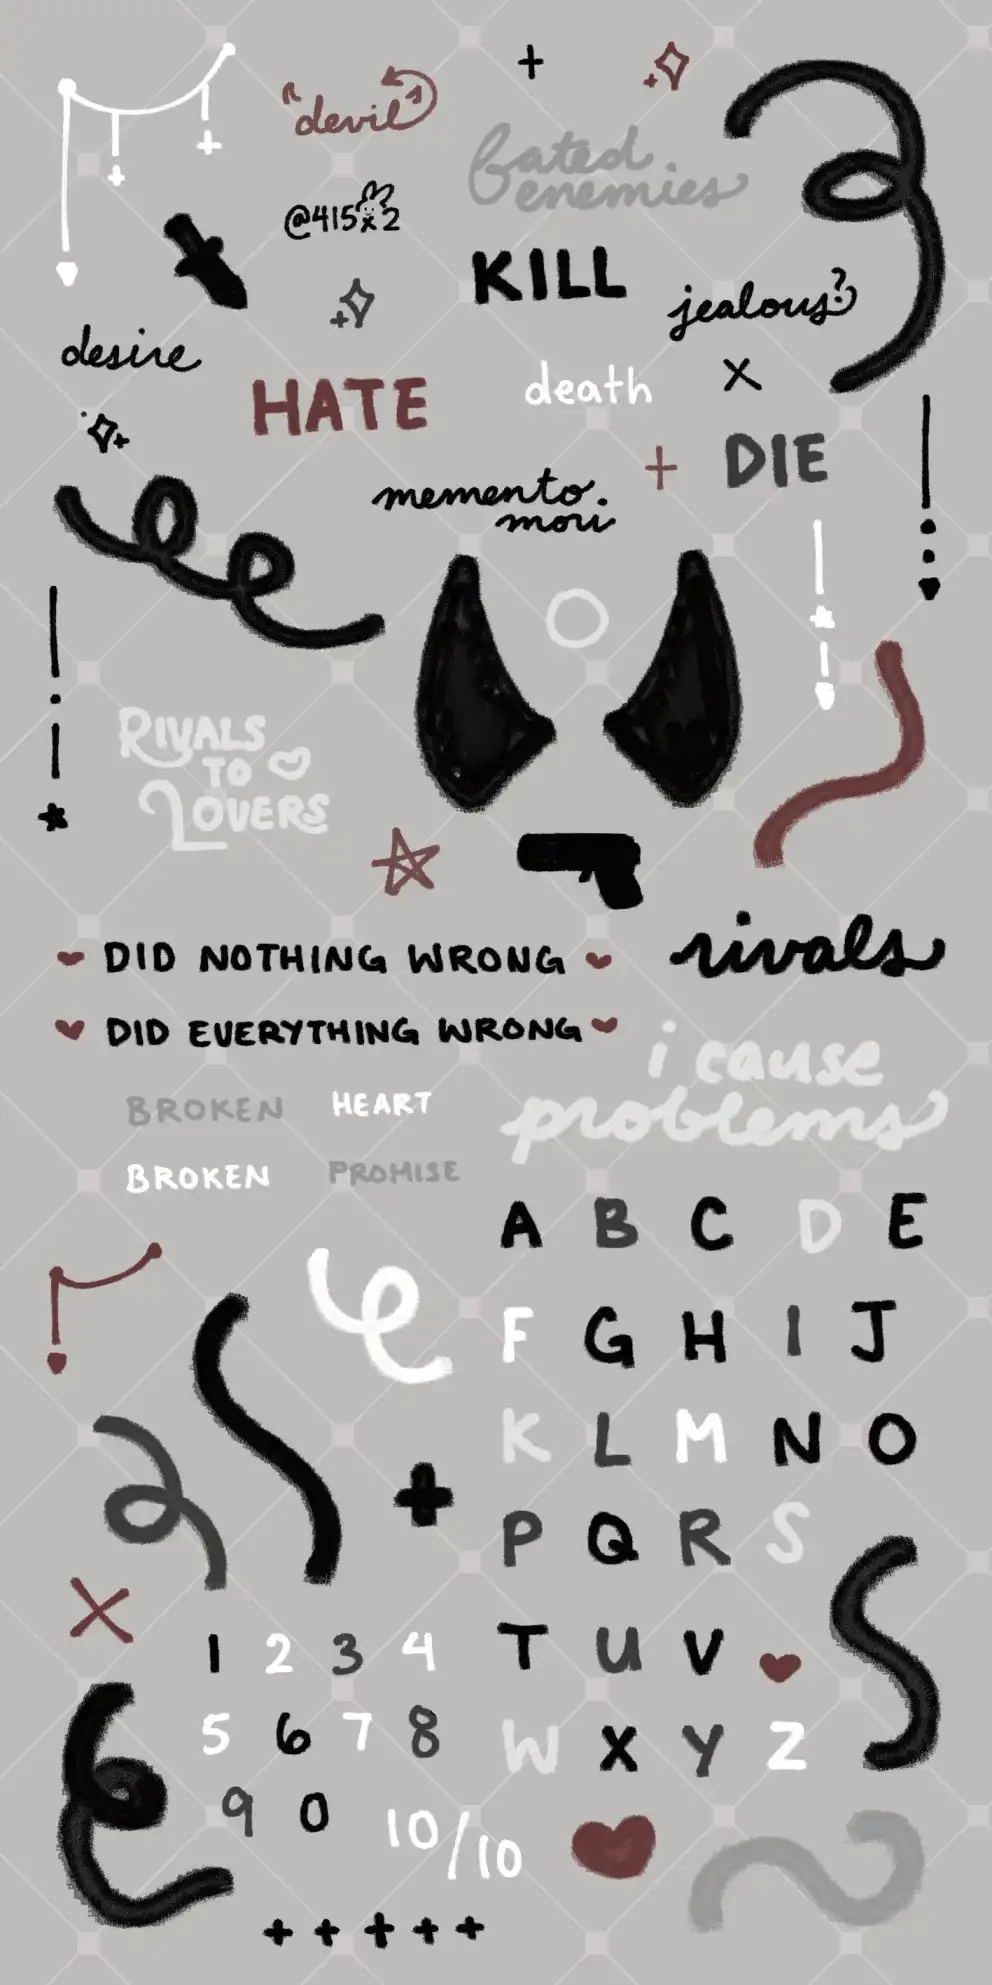 "devil"
fated
enemies
@415x2
KILL
jealous?
desire
HATE
death
x
DIE
memento
mori
RIVALS
TO
LOVERS
DID NOTHING WRONG
rivals
DID EVERYTHING WRONG
i cause
problems
BROKEN HEART
BROKEN PROMISE
A B C D E
F G H I J
K L M N O
P Q R S
T U V
W X Y Z
1 2 3 4
5 6 7 8
9 0
10/10